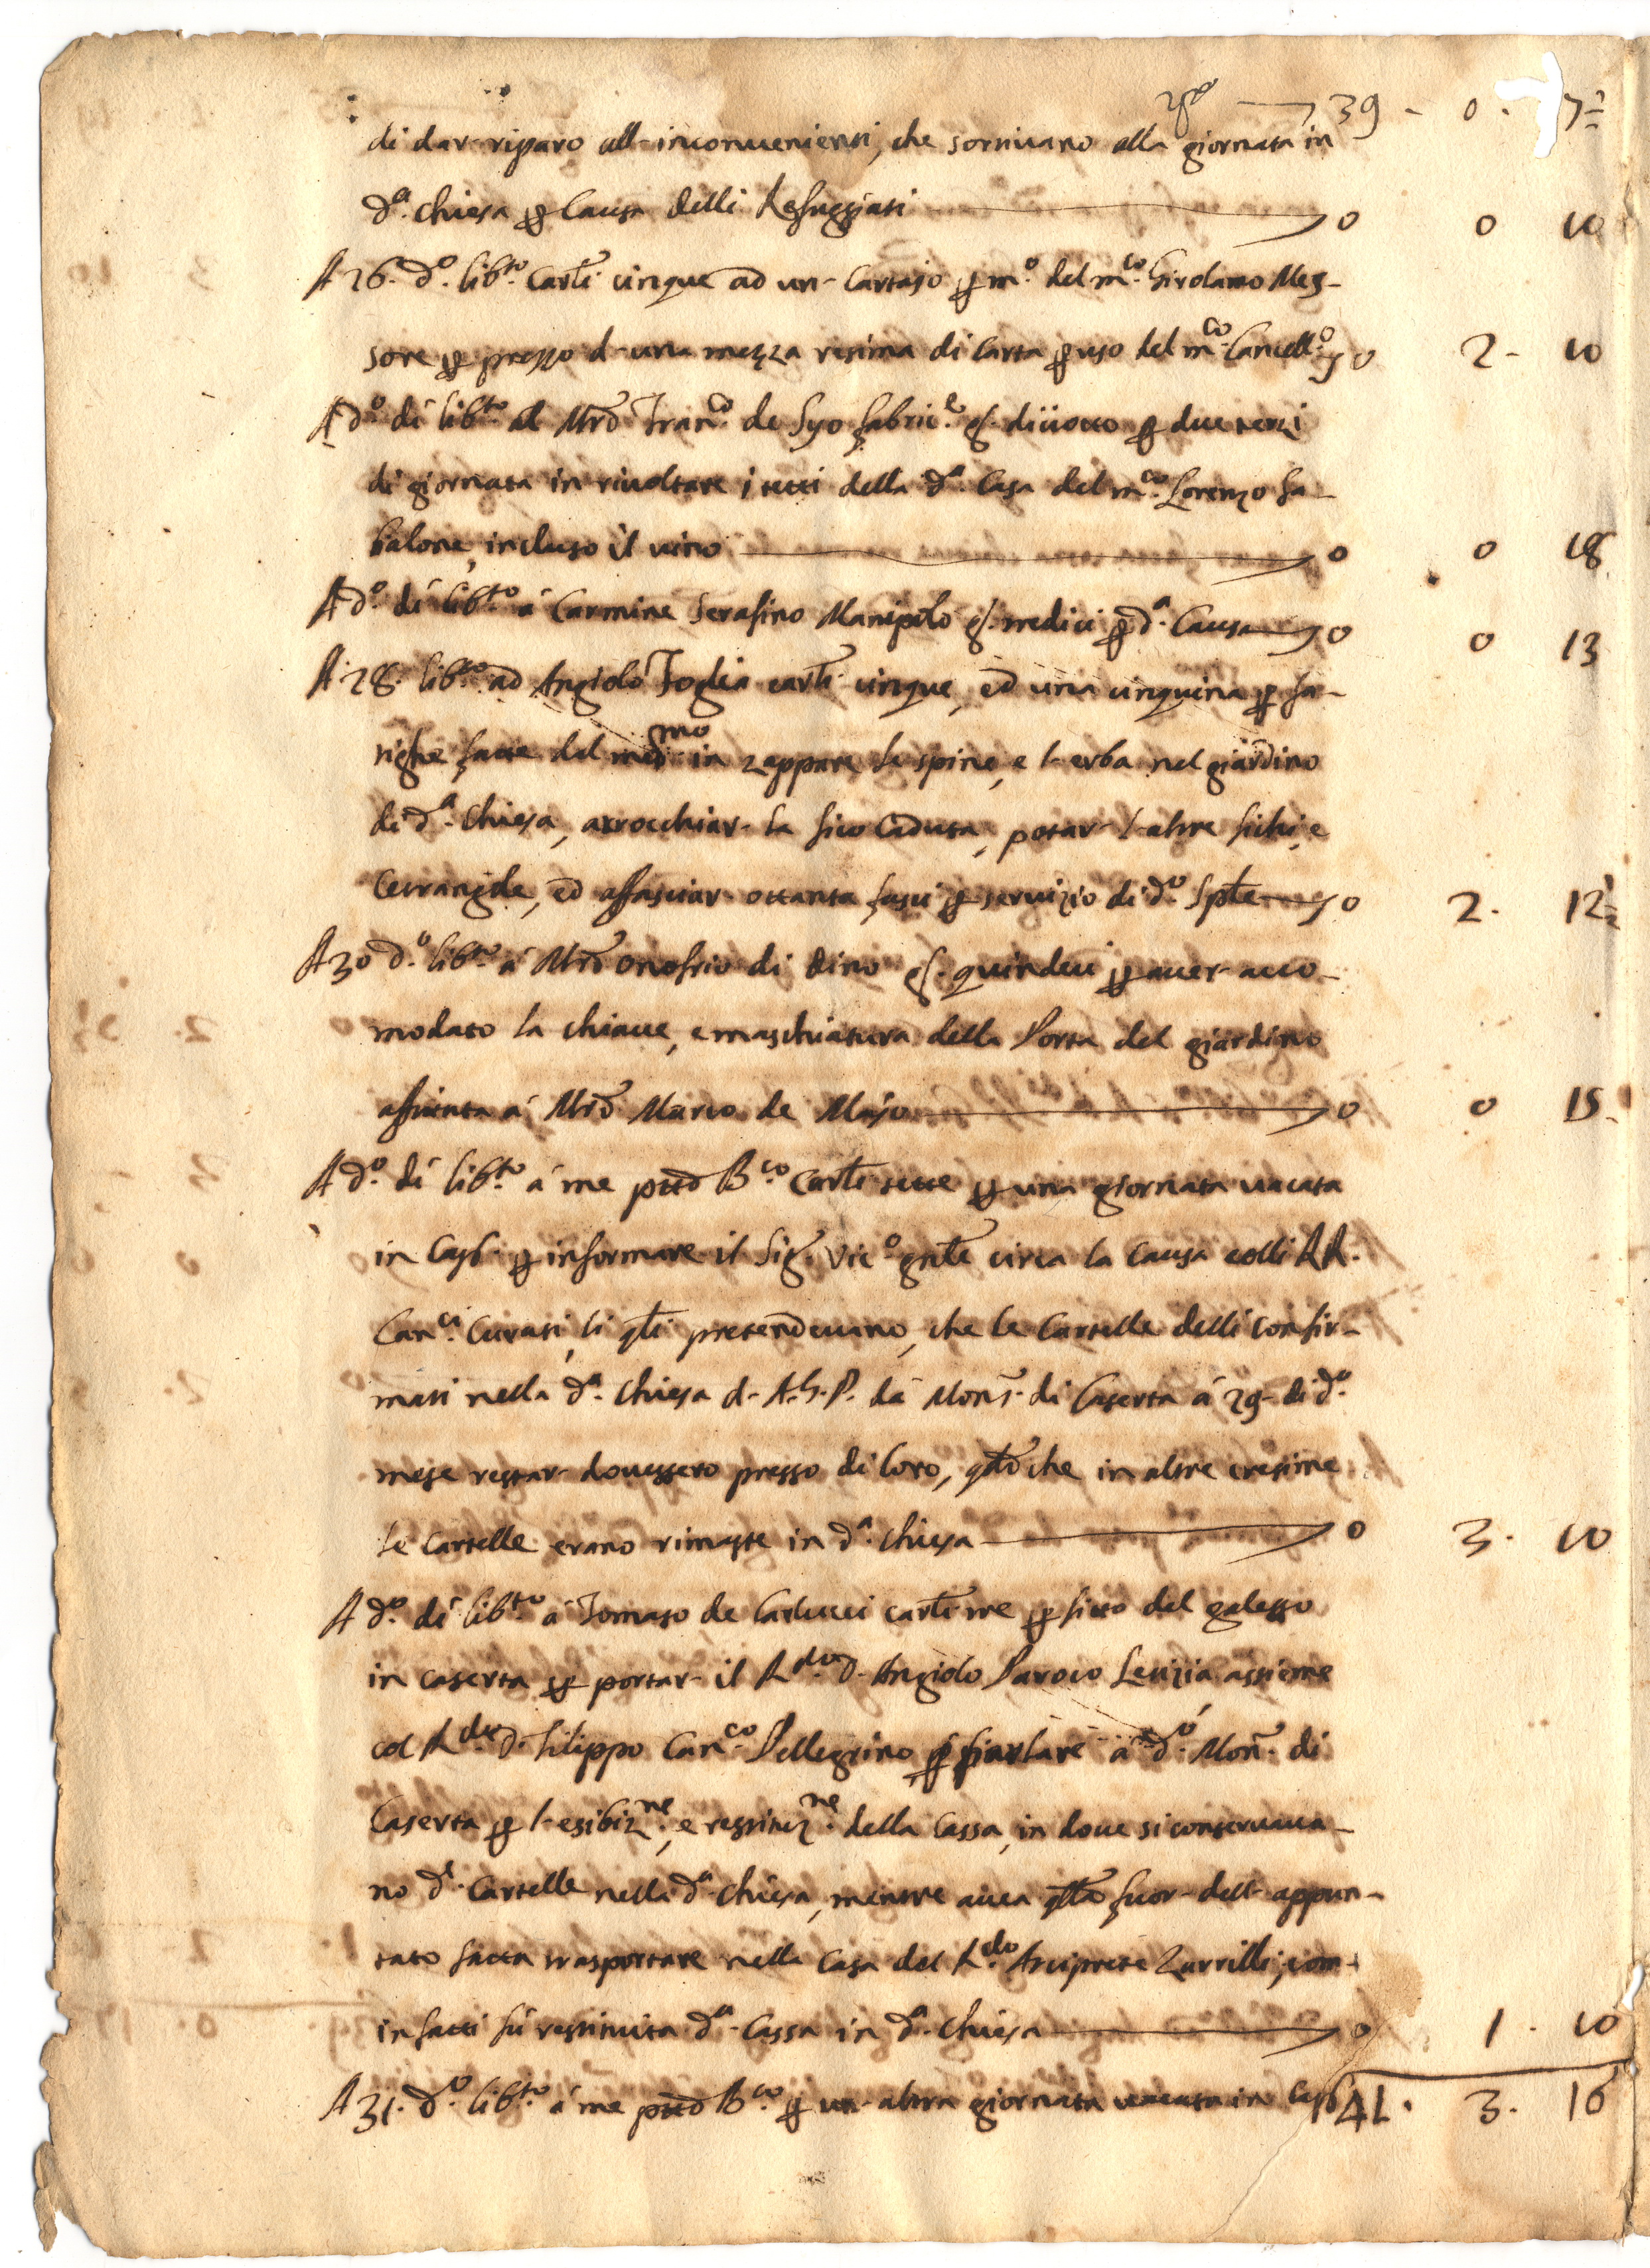 39 - 0 - 7½
di dar riparo all-inconvenienti, che sortivano alla giornata in
d.ª Chiesa p Causa delli Refuggiati 0 0 10
A 26. d.º lib.to Carli cinque ad un- Cartajo p m.º del m.co Girolamo Mes-
sore p prezzo d-una mezza risima di Carta p uso del m.co Cancell.º 0 2- 10
A d.º dí lib.to al Mrõ Fran.co de Syo fabric.e g. diciotto p due terzi
di giornata in rivoltare i tetti della d.ª Casa del m.co Lorenzo Fa-
balone, incluso il vino 0 0 18
A d.º dí lib.to á Carmine Serafino Manipolo g. tredici p d.ª Causa 0 0 13
A 28. lib.to ad Angiolo Foglia carli cinque, ed una cinquina p fa-
tighe fatte del medmo in zappare le spine, e l-erba nel giardino
di d.ª Chiesa, arrocchiar- la fico Caduta, potar- l-altre fichi, e
Cetrangole, ed affasciar- ottanta fasci p servizio di d.º Spłe 0 2. 12½
A 30 d.º lib.to á Mrõ Onofrio di Dino g. quindeci p aver- acco-
modato la chiave, e maschiatura della Porta del giardino
affittata á Mrõ Marco de Majo 0 0 15
A d.º dí lib.to á me pttõ B.co Carli sette p una giornata vacata
in Casł. p informare il Sig. Vic.º gnłe circa la Causa colli RR.
Can.ci Curati, li qłi pretendevano, che le Cartelle delli Confir-
mati nella d.ª Chiesa d- A.G.P. dá Mons. di Caserta á 29- di d.º
mese restar- dovessero presso di loro, qdõ che in altre cresime
le Cartelle erano rimaste in d.ª Chiesa 0 3. 10
A d.º dí lib.to á Tomaso de Carlucci carli tre p fitto del galesso
in Caserta p portar- il R.do D. Angiolo Paroco Letizia assieme
col R.do D. Filippo Can.co Pellegrino p parlare á d.º Mon. di
Caserta p l-esibiz.ne, e restituz.ne della Cassa, in dove si conservava-
no d.e Cartelle nella d.ª Chiesa, mentre avea qłla fuor- dell- appun-
tato fatta trasportare nella Casa del R.do Arciprete Zarrilli, com-
infatti fú restituita d.ª Cassa in d.ª Chiesa 0 1. 10
A 31. d.º lib.to á me pttõ B.co p un- altra giornata vacata in Casł. 41. 3. 16